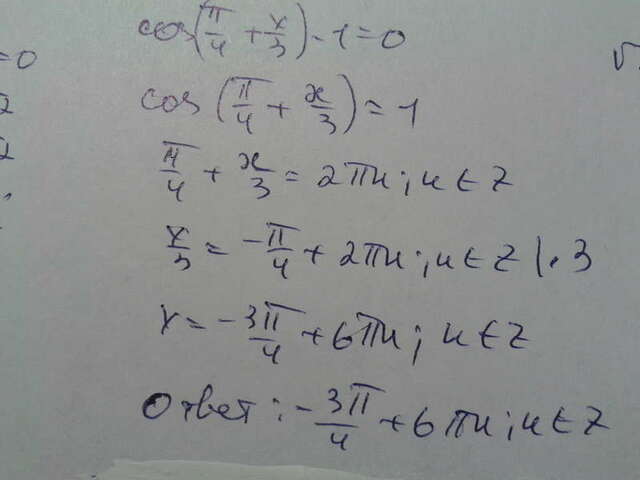 cos(π/4 + x/3) - 1 = 0
=0
cos(π/4 + x/3) = 1
π/4 + x/3 = 2πn; n ∈ Z
x/3 = -π/4 + 2πn; n ∈ Z |·3
x = -3π/4 + 6πn; n ∈ Z
Ответ: -3π/4 + 6πn; n ∈ Z